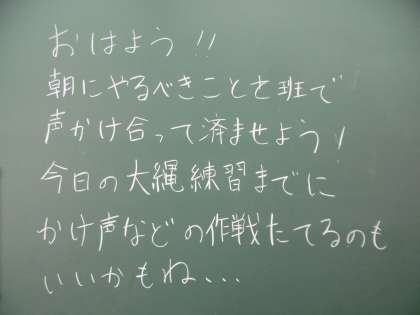 おはよう!!
朝にやるべきことを班で
声かけ合って済ませよう!
今日の大縄練習までに
かけ声などの作戦たてるのも
いいかもね...